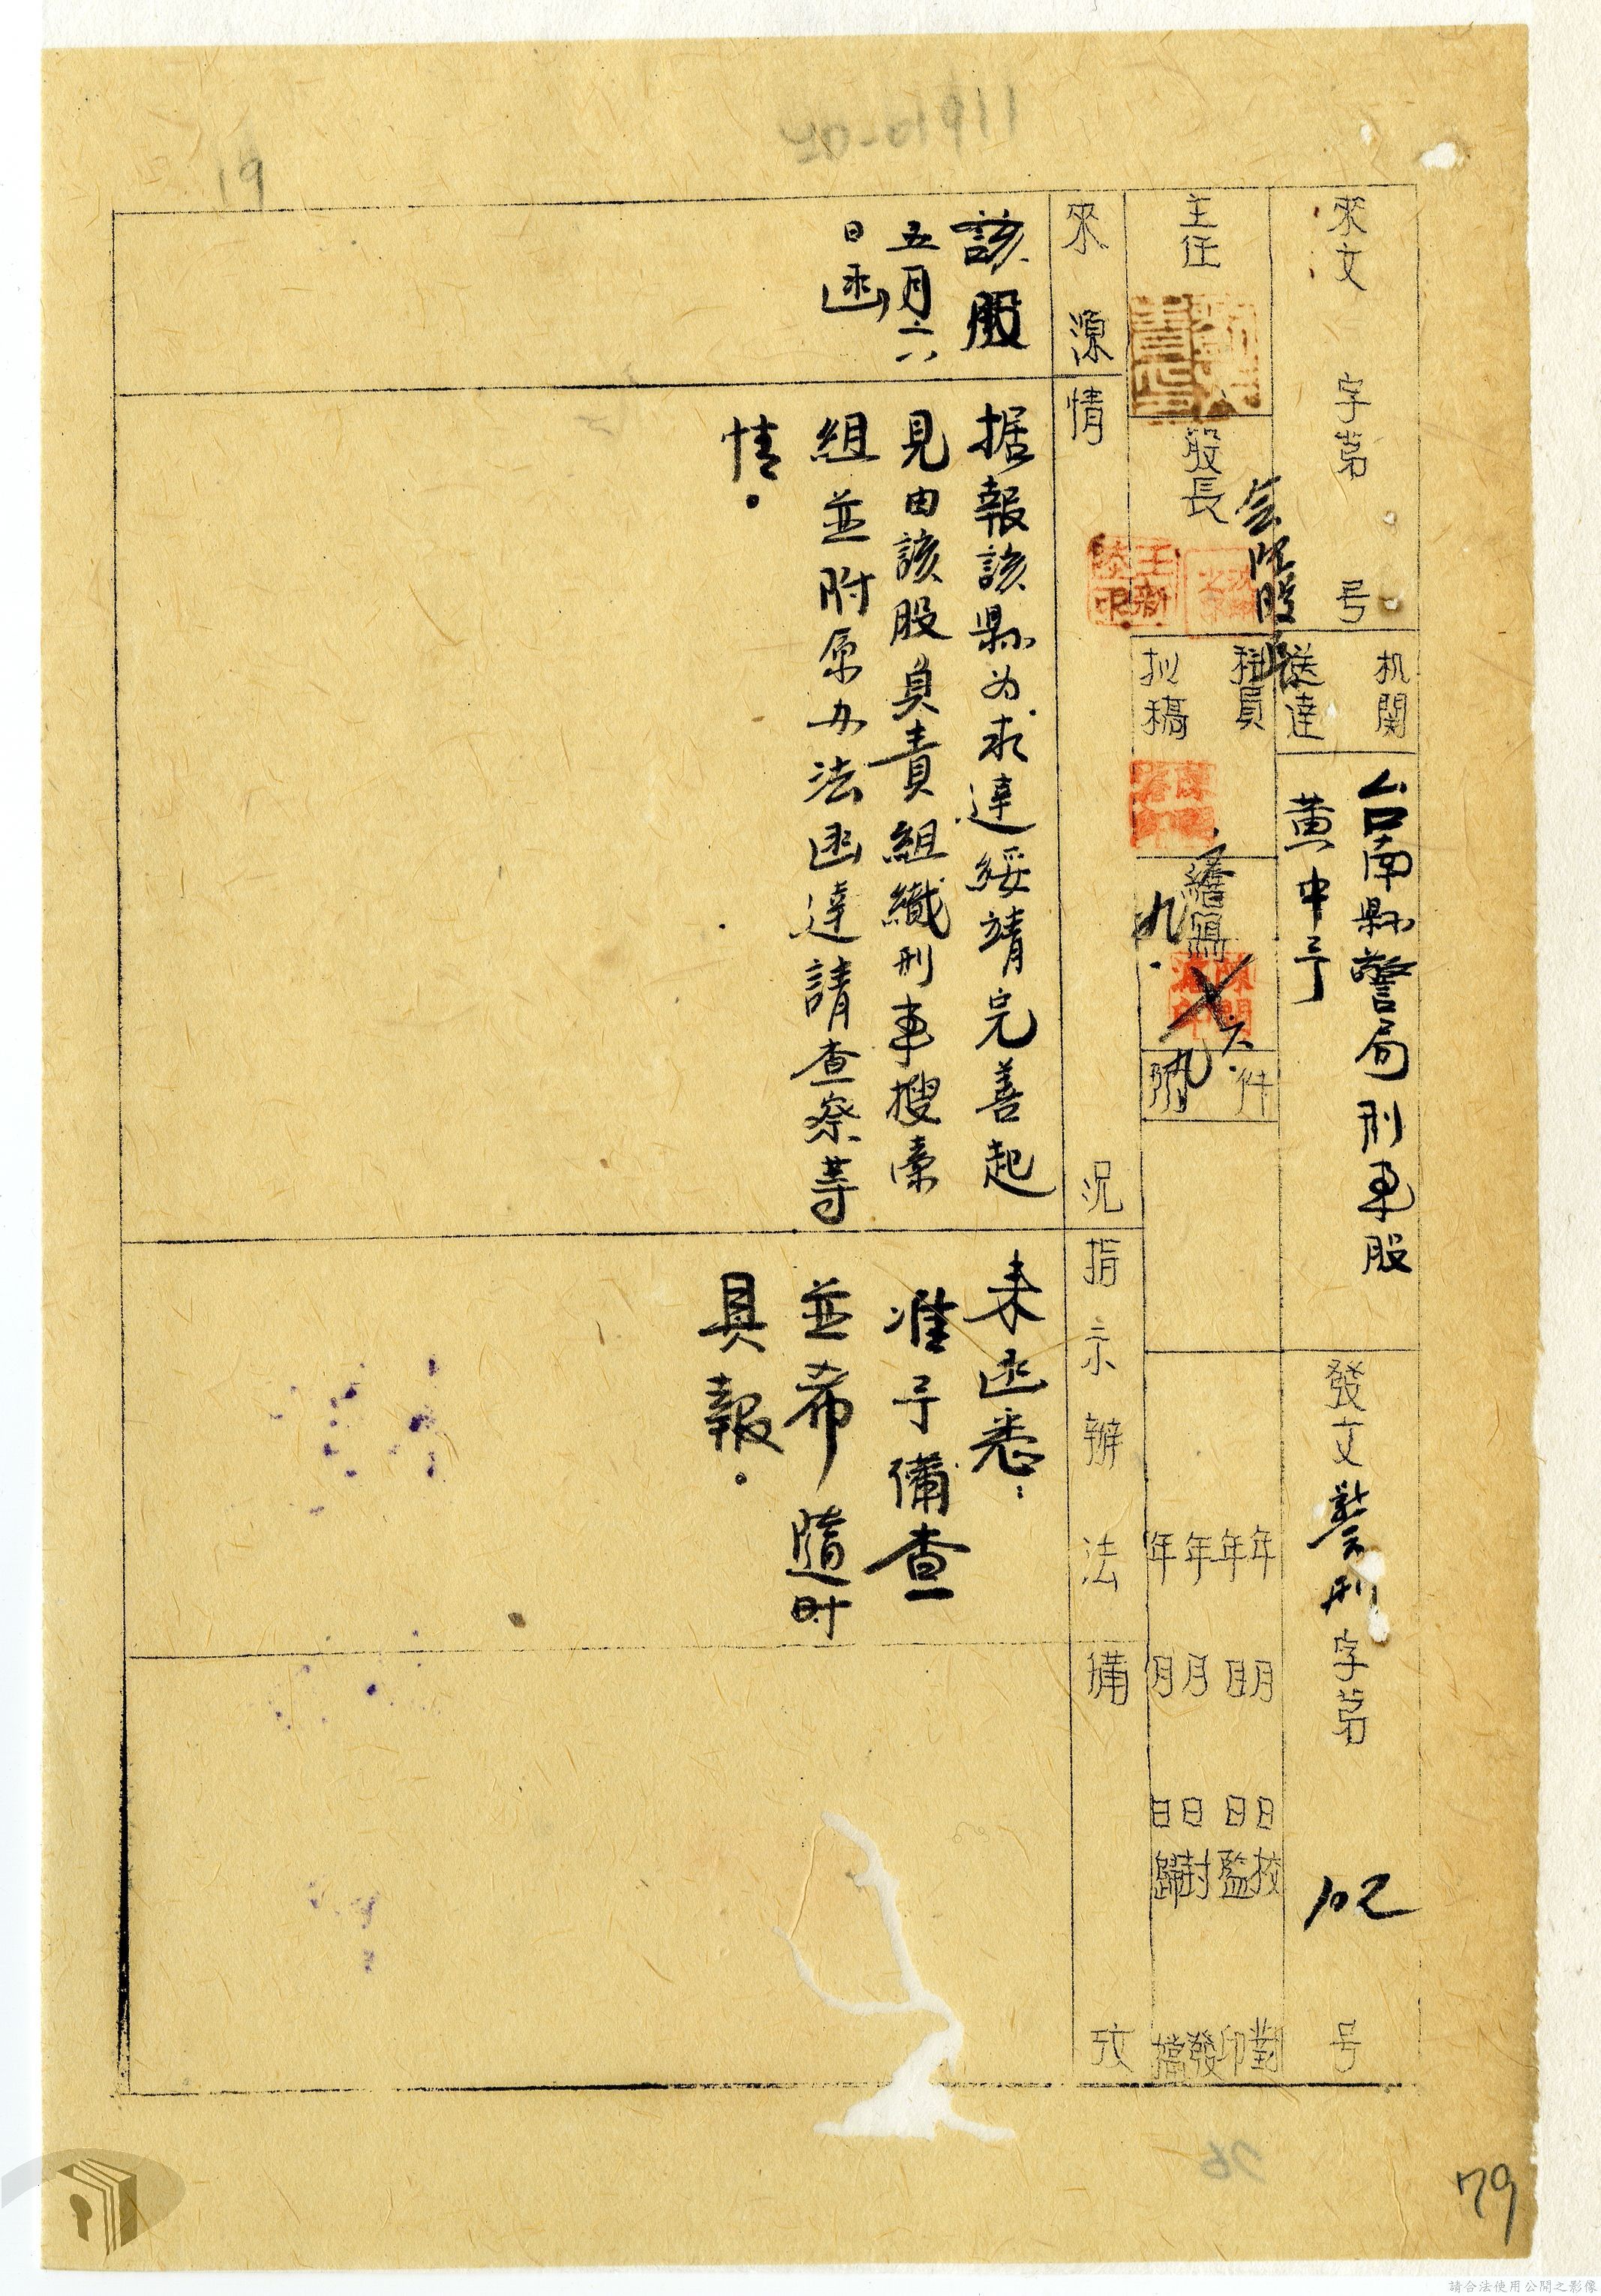 來文　字第　号
机関
送達
台南縣警局刑事股
黃中予
發文警刑字第102号
主任
股長
会
科員
拟稿
繕寫
附件
年月日校對
年月日監印
年月日封發
年月日歸檔
來源
情況
指示辦法
備攷
該股
五月六
日函
据報該縣为求達綏靖完善起
見由該股負責組織刑事搜索
組並附原办法函達請查察等
情。
来函悉：
准予備查
並希隨时
具報。
19
79
請合法使用公開之影像